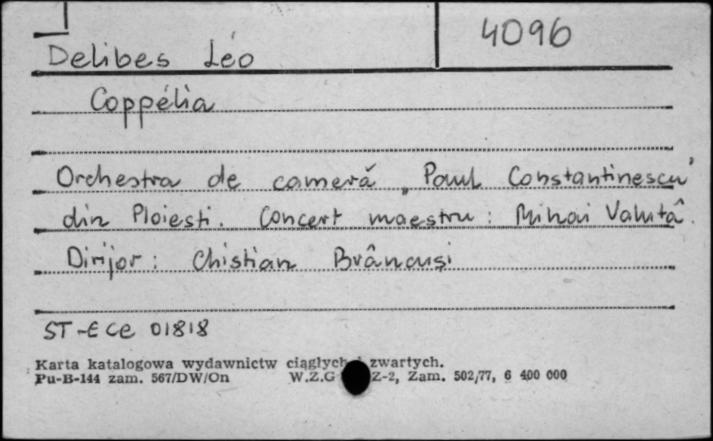 4096
Delibes Léo
Coppélia
Orchestra de cameră „Paul Constantinescu"
din Ploiesti. Concert maestru: Mihai
Dirijor: Chistian Brâncuşi
ST-ECE 01818
Karta katalogowa wydawnictw ciągłych i zwartych.
Pu-B-144 zam. 567/DW/On W.Z.G Z-2, Zam. 502/77, 6 400 000